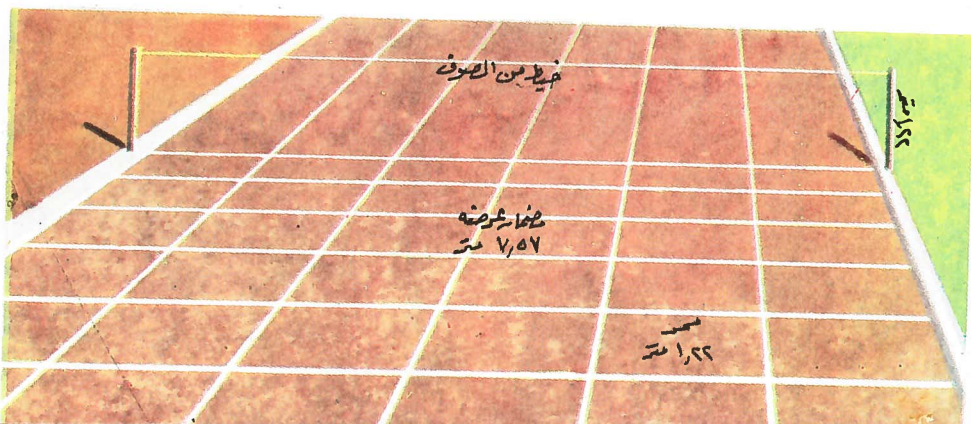 خيط من الصوف
١,٢٢ متر
مضمار عرضه
٧,٥٧ متر
ممر
١,٢٢ متر